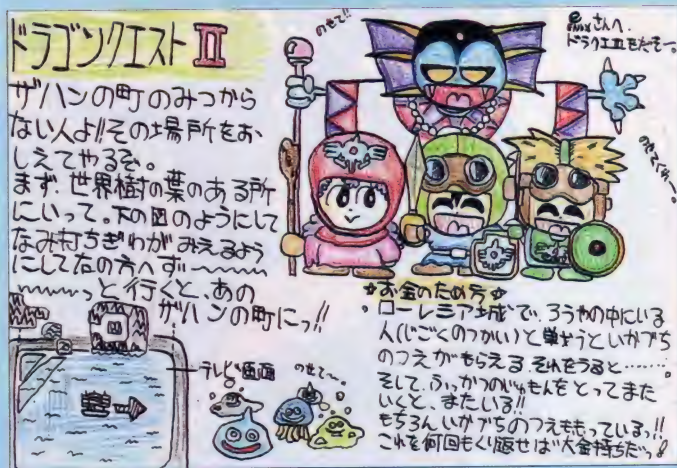 ドラゴンクエストⅡ
ザハンの町のみつから
ない人よ!!その場所をお
しえてやるぞ。
まず、世界樹の葉のある所
にいって。下の図のようにして
なみ打ちぎわがみえるよう
にして右の方へず〜〜〜
〜〜〜っと行くと、あの
ザハンの町にっ!!
テレビ画面
のせて〜。
のせて!!
さんへ.
ドラクエⅢをだぞー。
のせてくれー。
☆お金のため方☆
・ローレシア城で、ろうやの中にいる
人(じごくのつかい)と戦うといかづち
のつえがもらえる。それをうると……。
そして、ふっかつのじゅもんをとってまた
いくと、またいる!!
もちろんいかづちのつえももっているっ!!
これを何回もくり返せば大金持ちだっ!